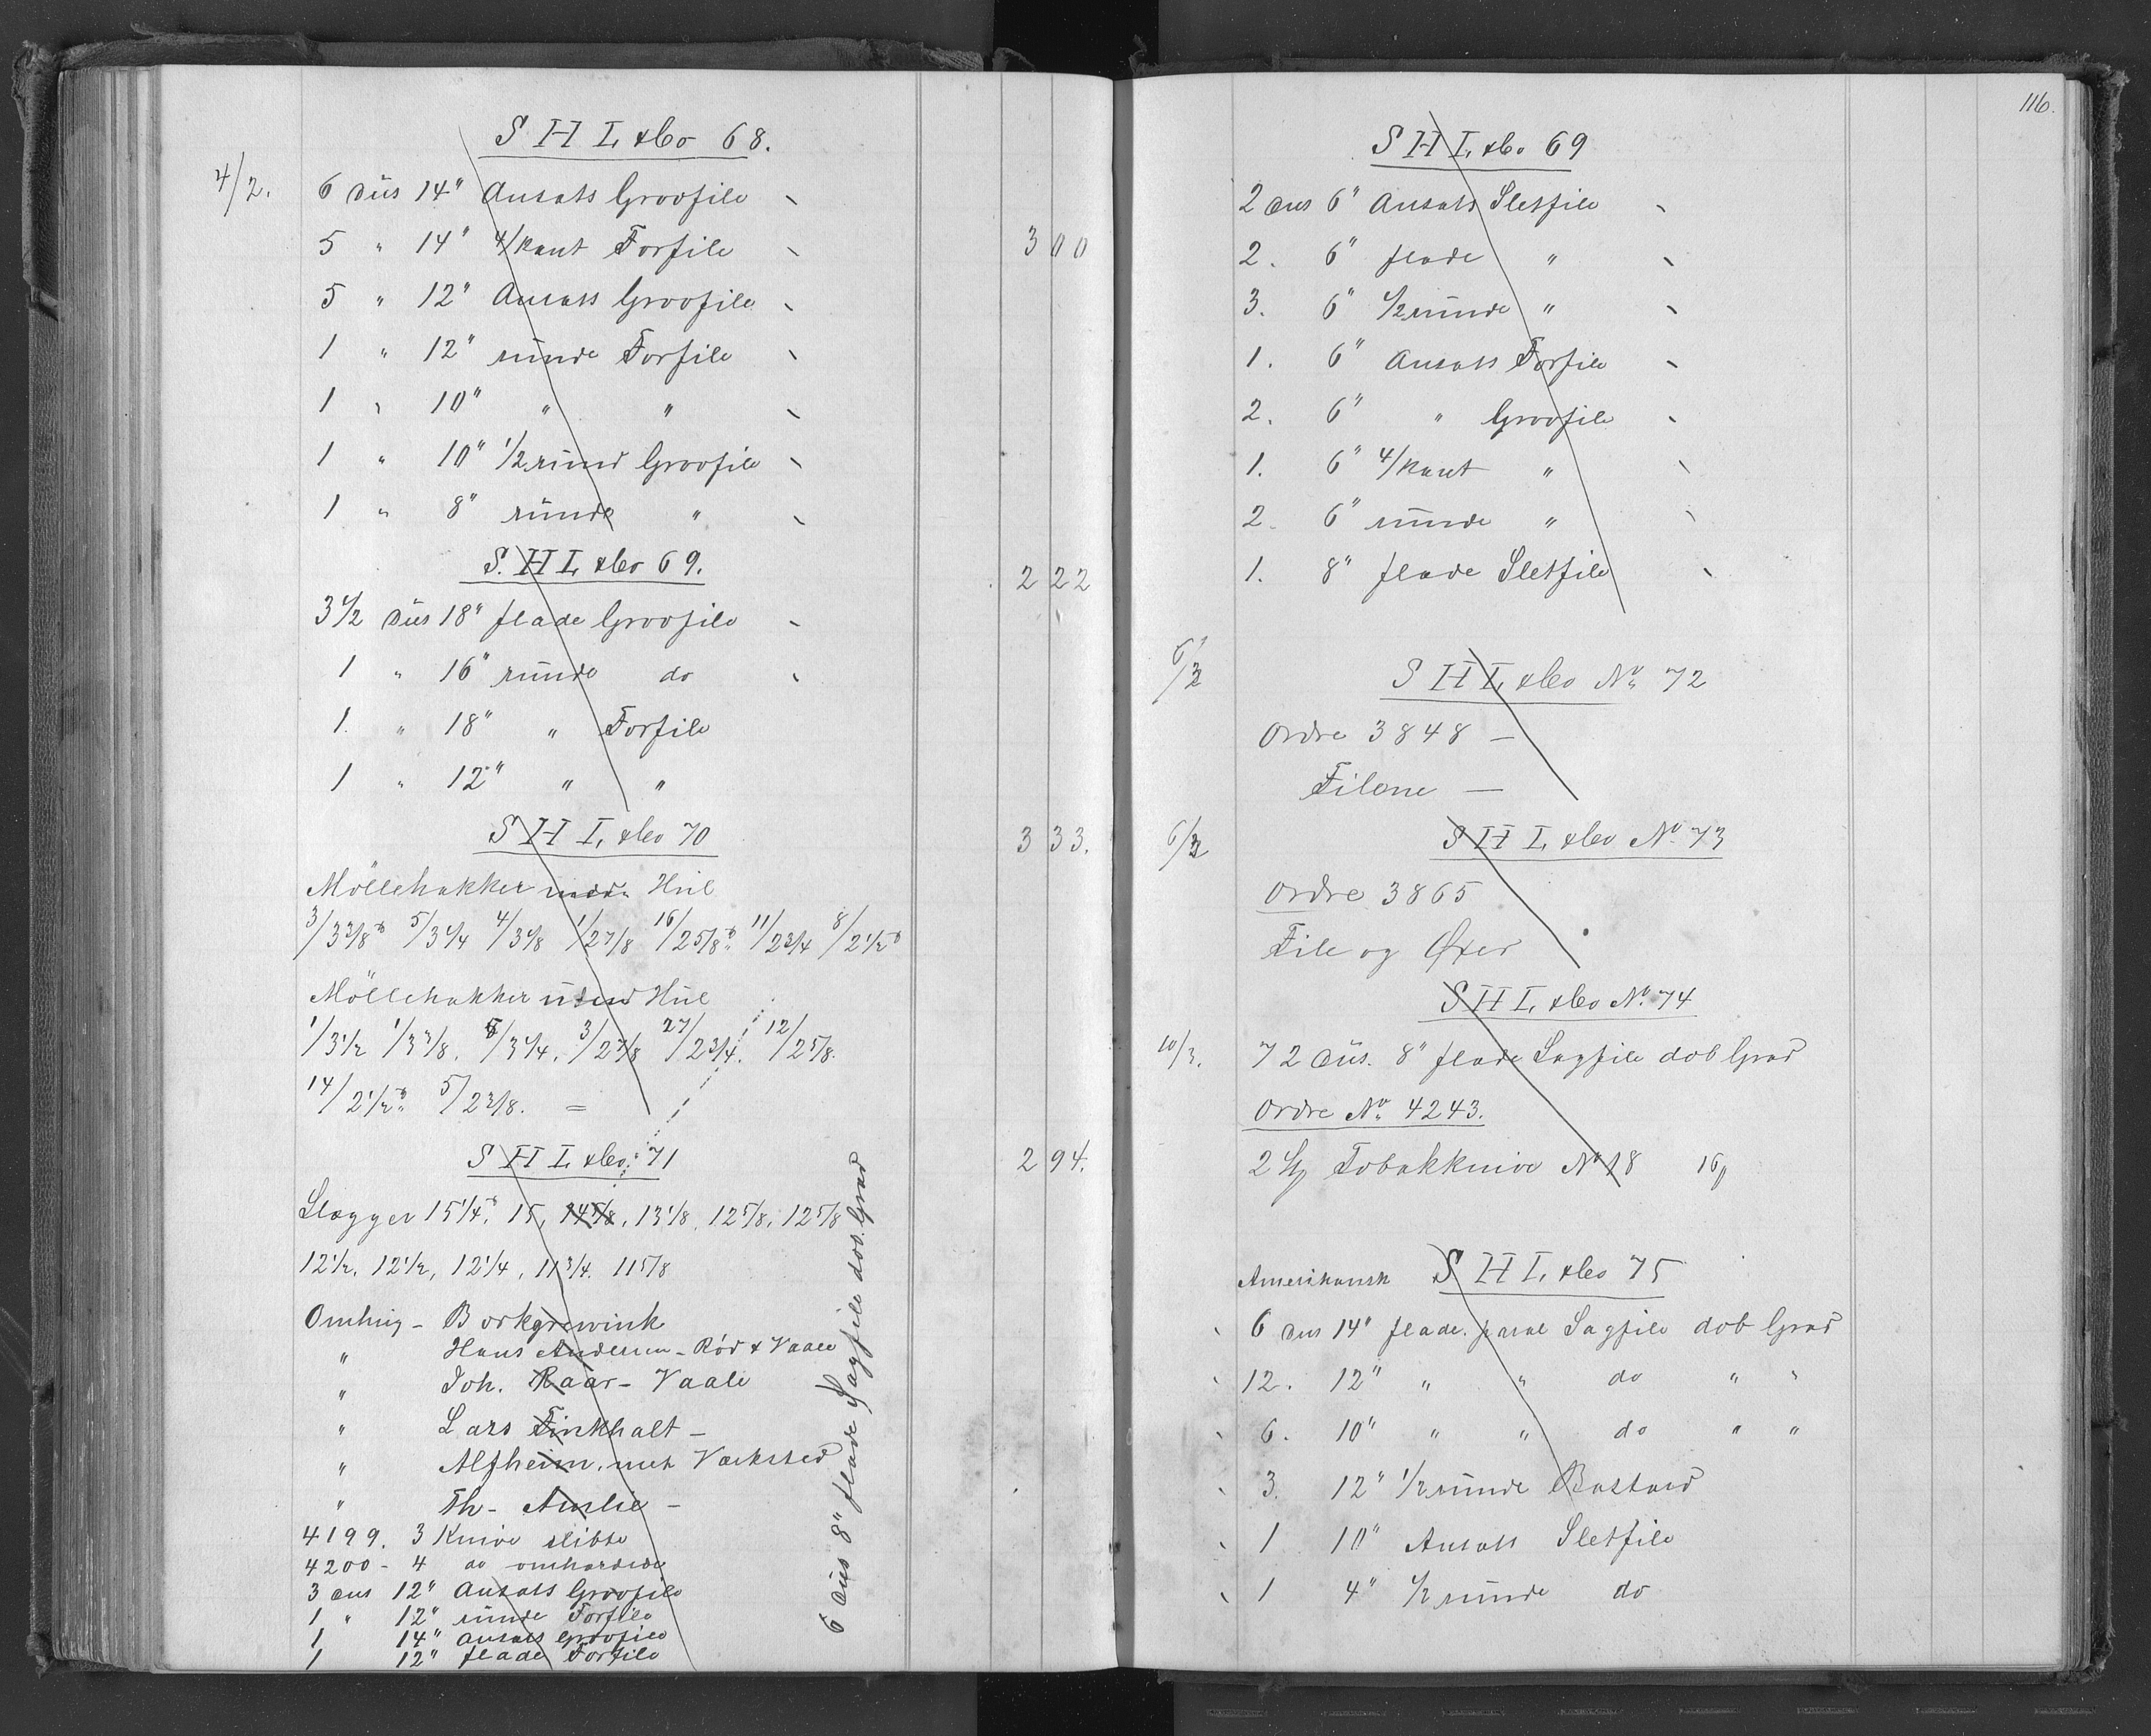 S H L & Co 68.
4/2. 6 dus 14" Ansats Grovfile
5 " 14" 4/kant Forfile 300
5 " 12" Ansats Grovfile
1 " 12" runde Forfile
1 " 10" " "
1 " 10" 1/2 rund Grovfile
1 " 8" runde "
S. H L & Co 69. 222
3 1/2 dus 18" flade Grovfile
1 " 16" runde do
1. " 18" " Forfile
1 " 12" " "
S H L & Co 70 333.
Möllehakker med Hul
3/3 3/8 5/3 1/4 4/3 1/8 1/2 7/8 16/2 5/8 11/2 3/4 8/2 1/2
Möllehakker uden Hul
1/3 1/2 1/3 3/8. 5/3 1/4. 3/2 7/8 27/2 3/4. 12/2 5/8.
14/2 1/2 5/2 3/8. =
S H L & Co. 71 294.
Slægger 15 1/4, 15, 14 7/8, 13 1/8, 12 7/8, 12 5/8
12 1/2, 12 1/2, 12 1/4, 11 3/4. 11 5/8
Omhug - Borkgrewink
" Hans Andersen - Rød & Vaale
" Joh. Raar - Vaale
" Lars Finkhalt -
" Alfheim. mek Værksted
" Th - Amlie -
4199. 3 Knive slibte
4200 - 4 do omhærdede
3 dus 12" Ansats Grovfile
1 " 12" runde Forfile
1 14" Ansats Grovfile
1 12" flade Forfile
6 dus 8" flade Sagfile dob. Grad
116.
S H L & Co 69
2 dus 6" Ansats Sletfile
2. 6" flade "
3. 6" 1/2 runde "
1. 6" Ansats Forfile
2. 6" " Grovfile
1. 6" 4/kant "
2. 6" runde "
1. 8" flade Sletfile
6/3 S H L & Co No 72
Ordre 3848 -
Filene -
6/3 S H L & Co No 73
Ordre 3865
File og Øxer
S H L & Co No 74
10/3. 72 dus. 8" flade Sagfile dob Grad
Ordre No 4243.
2 Tobakknive No 18 16
Amerikansk S H L & Co 75
6 dus 14" flade. paral Sagfile dob Grad
12. 12" " " do " "
6. 10" " " do " "
3. 12" 1/2 runde Bastard
1 10" Ansats Sletfile
1 4" 1/2 runde do